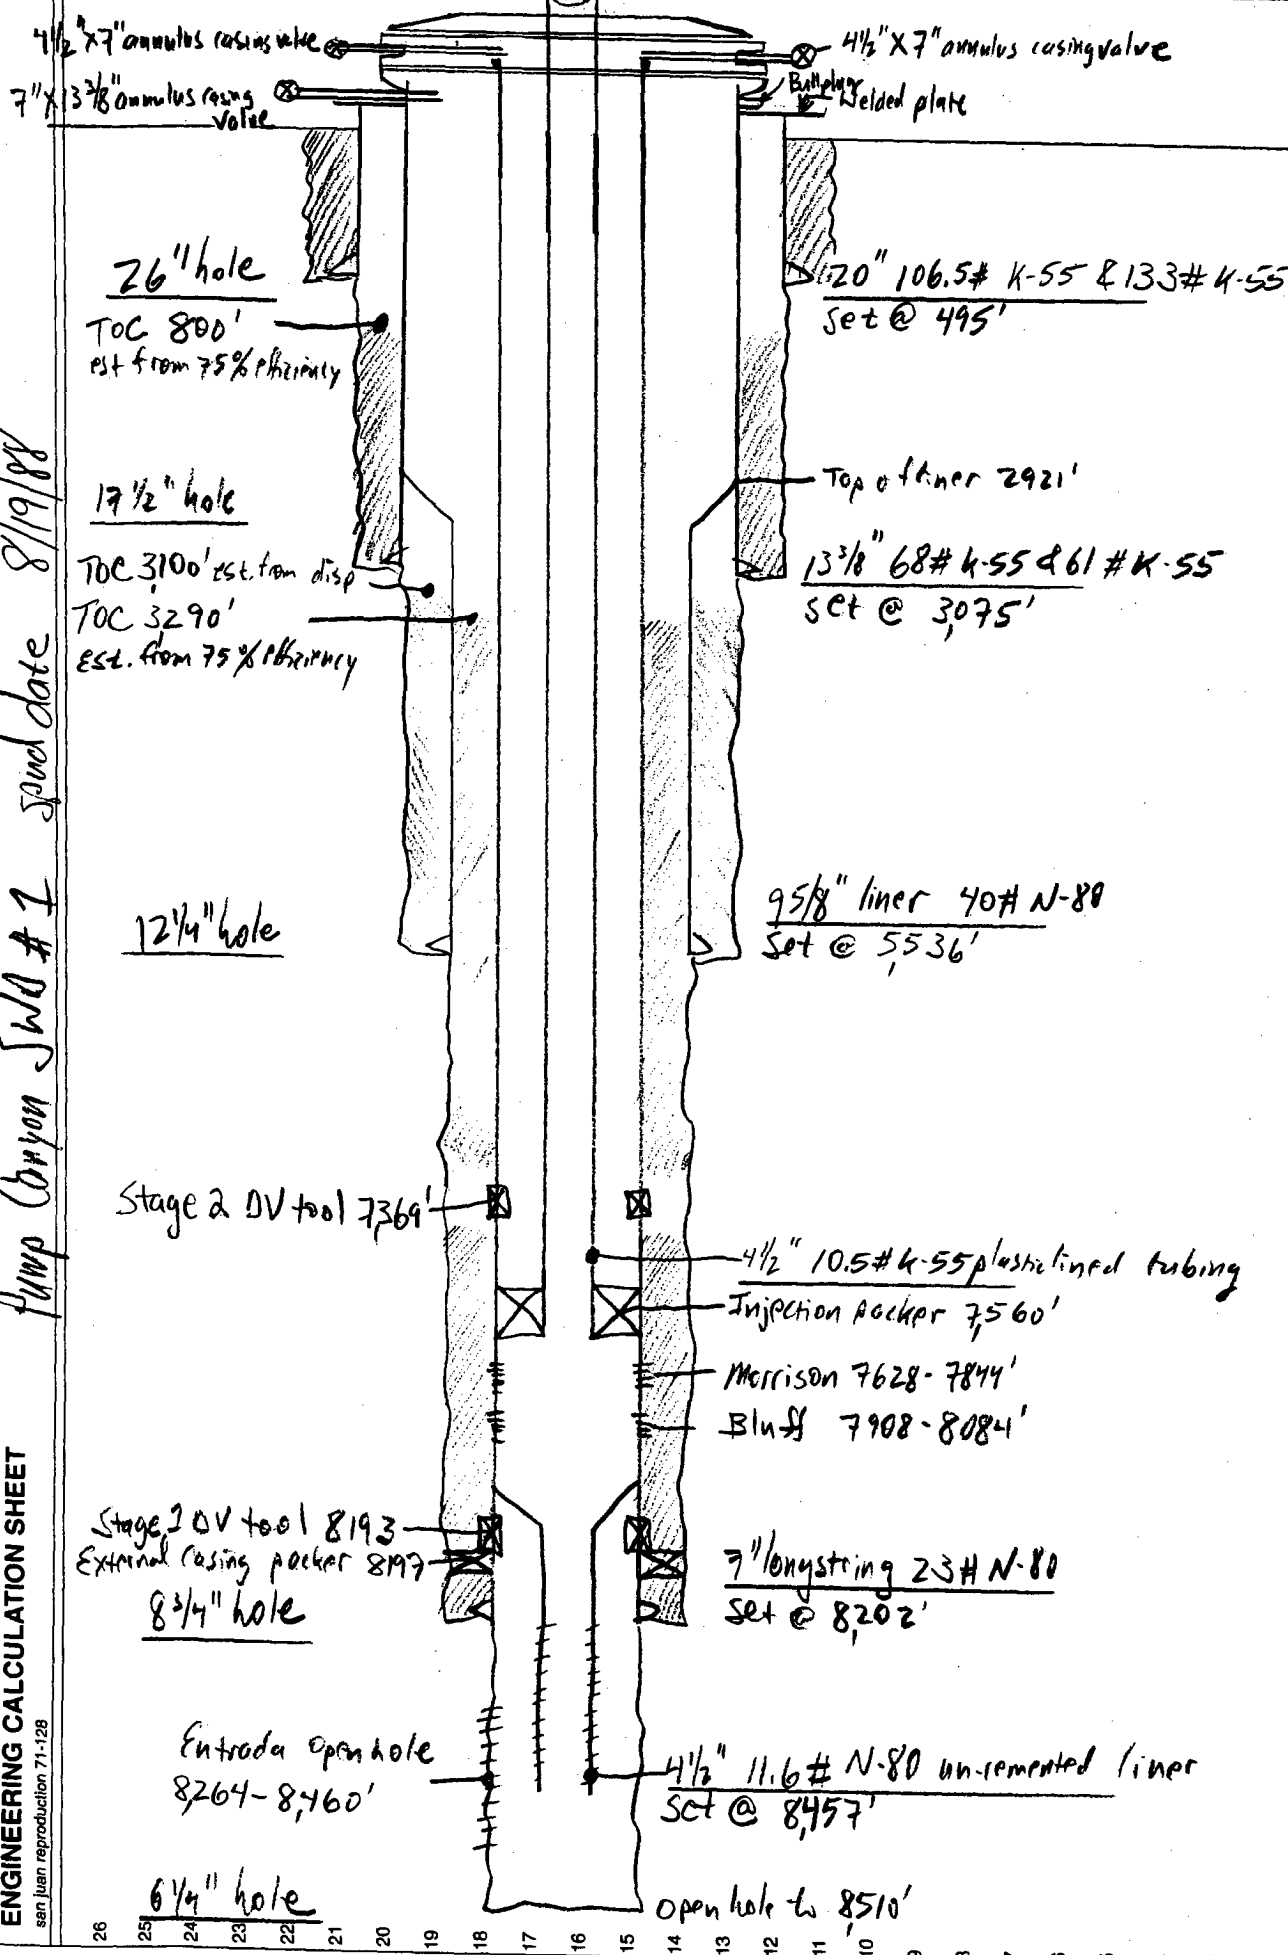 4½" X 7" annulus casing valve
4½" X 7" annulus casing valve
7" X 13 3/8" annulus casing
valve
Bull plug
Welded plate
26" hole
TOC 800'
est from 75% efficiency
20" 106.5# K-55 & 133# K-55
set @ 495'
17 ½" hole
Top of liner 2921'
TOC 3,100' est. from disp
TOC 3,290'
est. from 75% efficiency
13 3/8" 68# K-55 & 61# K-55
set @ 3,075'
12 ¼" hole
9 5/8" liner 40# N-80
Set @ 5,536'
Stage 2 DV tool 7,369'
4½" 10.5# K-55 plastic lined tubing
Injection packer 7,560'
Morrison 7628-7844'
Bluff 7908-8084'
Stage 1 DV tool 8193
External Casing packer 8197
8 3/4" hole
7" longstring 23# N-80
set @ 8,202'
Entrada open hole
8,264-8,460'
4½" 11.6# N-80 un-cemented liner
set @ 8,457'
6 ¼" hole
open hole to 8,510'
Pump Canyon SWD # 1 spud date 8/19/88
ENGINEERING CALCULATION SHEET
san juan reproduction 71-128
26 25 24 23 22 21 20 19 18 17 16 15 14 13 12 11 10